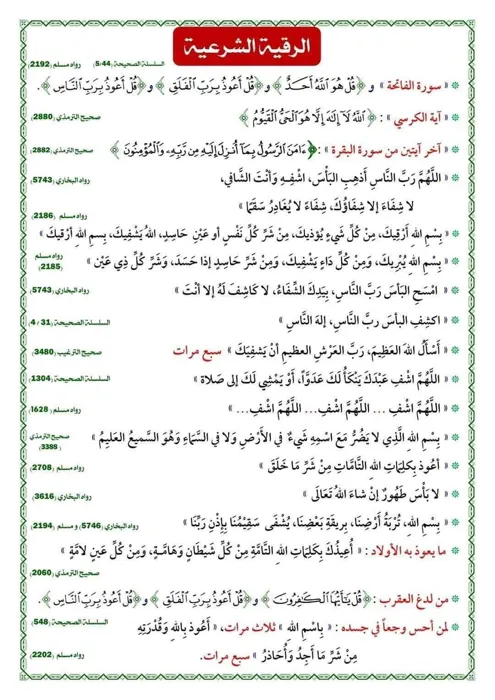 الرقية الشرعية
* « سورة الفاتحة » و ﴿قُلْ هُوَ اللَّهُ أَحَدٌ﴾ و﴿قُلْ أَعُوذُ بِرَبِّ الْفَلَقِ﴾ و﴿قُلْ أَعُوذُ بِرَبِّ النَّاسِ﴾. السلسلة الصحيحة (5/44) رواه مسلم (2192)
* « آية الكرسي » : ﴿اللَّهُ لَآ إِلَهَ إِلَّا هُوَ الْحَيُّ الْقَيُّومُ﴾ صحيح الترمذي (2880)
* « آخر آيتين من سورة البقرة » : ﴿ءَامَنَ الرَّسُولُ بِمَآ أُنزِلَ إِلَيْهِ مِن رَّبِّهِ وَالْمُؤْمِنُونَ﴾ صحيح الترمذي (2882)
* « اللَّهُمَّ رَبَّ النَّاسِ أَذهِبِ البَأسَ، اشْفِهِ وَأَنْتَ الشَّافي، رواه البخاري (5743)
لا شِفَاءَ إلا شِفَاؤُكَ، شِفَاءً لا يُغَادِرُ سَقَمًا » رواه مسلم (2186)
* « بِسْمِ اللهِ أَرْقِيكَ، مِنْ كُلِّ شَيءٍ يُؤذيكَ، مِنْ شَرِّ كُلِّ نَفْسٍ أو عَيْنِ حَاسِدٍ، اللهُ يَشْفِيكَ، بِسمِ اللهِ أرْقيكَ »
* « بِسْمِ اللهِ يُبْرِيكَ، وَمِنْ كُلِّ دَاءٍ يَشْفِيكَ، وَمِنْ شَرِّ حَاسِدٍ إذا حَسَدَ، وَشَرِّ كُلِّ ذِي عَيْنٍ » رواه مسلم (2185)
* « امْسَحِ البَأسَ رَبَّ النَّاسِ، بِيَدِكَ الشِّفَاءُ، لا كَاشِفَ لَهُ إلا أنْتَ » رواه البخاري (5743)
* « اكشِفِ البأسَ ربَّ النَّاسِ، إلهَ النَّاسِ » السلسلة الصحيحة (31 / 4)
* « أَسْأَلُ اللهَ العَظِيمَ، رَبَّ العَرْشِ العظيمِ أنْ يَشفِيَكَ » سبع مرات صحيح الترغيب (3480)
* « اللَّهُمَّ اشْفِ عَبْدَكَ يَنْكَأُ لَكَ عَدُوًّا، أَوْ يَمْشِي لَكَ إلى صَلاة » السلسلة الصحيحة (1304)
* « اللَّهُمَّ اشْفِ … اللَّهُمَّ اشْفِ... اللَّهُمَّ اشْفِ... » رواه مسلم (1628)
* « بِسْمِ اللهِ الَّذِي لا يَضُرُّ مَعَ اسْمِهِ شَيءٌ في الأَرْضِ وَلا في السَّمَاءِ وَهُوَ السَّميعُ العَلِيمُ » صحيح الترمذي (3388)
* « أعُوذ بِكلِمَاتِ اللهِ التَّامَّاتِ مِنْ شَرِّ مَا خَلَقَ » رواه مسلم (2708)
* « لا بَأسَ طَهُورٌ إنْ شاءَ اللهُ تَعَالَى » رواه البخاري (3616)
* « بِسْمِ اللهِ، تُرْبَةُ أَرْضِنَا، بِرِيقَةِ بَعْضِنَا، يُشْفَى سَقِيمُنَا بِإذْنِ رَبِّنَا » رواه البخاري (5746) و مسلم (2194)
* ما يعوذ به الأولاد : « أُعِيذُكَ بِكَلِمَاتِ اللهِ التَّامَّةِ مِنْ كُلِّ شَيْطَانٍ وَهَامَّةٍ، وَمِنْ كُلِّ عَينٍ لامَّةٍ »
صحيح الترمذي (2060)
* من لدغ العقرب : ﴿قُلْ يَٰٓأَيُّهَا الْكَٰفِرُونَ﴾ و﴿قُلْ أَعُوذُ بِرَبِّ الْفَلَقِ﴾ و﴿قُلْ أَعُوذُ بِرَبِّ النَّاسِ﴾.
* لمن أحس وجعاً في جسده : « بِاسْمِ اللهِ » ثلاث مرات، « أَعُوذُ بِاللهِ وَقُدْرَتِهِ السلسلة الصحيحة (548)
مِنْ شَرِّ مَا أَجِدُ وَأُحَاذرُ » سبع مرات. رواه مسلم (2202)